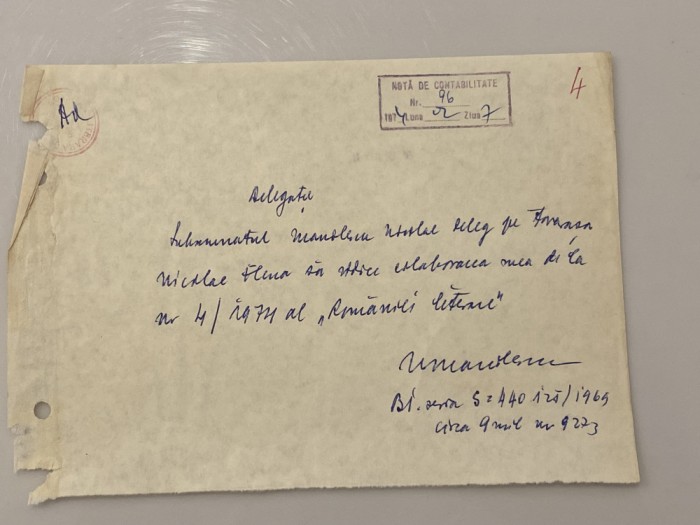 NOTĂ DE CONTABILITATE
Nr. 96
1974 Luna Ziua 7
4
Ad
Delegație
Subsemnatul Manolescu Nicolae deleg pe Tovarașa
Nicolae Elena să ridice colaborarea mea de la
nr 4/1974 al „României literare"
NManolescu
BI. seria